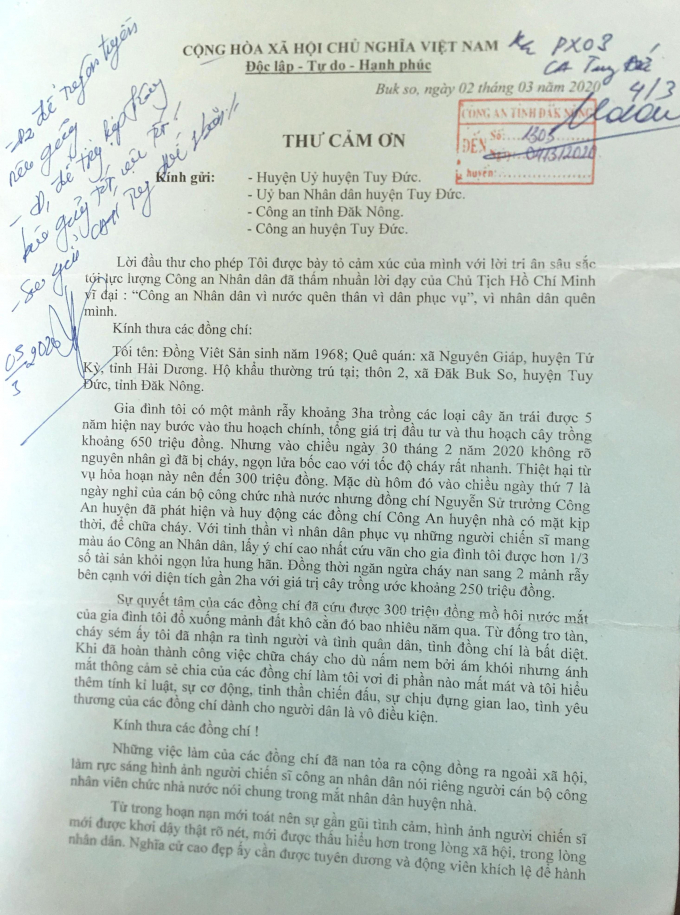 CỘNG HÒA XÃ HỘI CHỦ NGHĨA VIỆT NAM
Độc lập - Tự do - Hạnh phúc
Buk so, ngày 02 tháng 03 năm 2020
PX03
CA Tuy Đức
4/3
CÔNG AN TỈNH ĐĂK NÔNG
ĐẾN Số: 1303
04/3/2020
THƯ CẢM ƠN
Kính gửi: - Huyện Uỷ huyện Tuy Đức.
- Uỷ ban Nhân dân huyện Tuy Đức.
- Công an tỉnh Đăk Nông.
- Công an huyện Tuy Đức.
05/3 2020
Lời đầu thư cho phép Tôi được bày tỏ cảm xúc của mình với lời tri ân sâu sắc
tới lực lượng Công an Nhân dân đã thấm nhuần lời dạy của Chủ Tịch Hồ Chí Minh
vĩ đại : “Công an Nhân dân vì nước quên thân vì dân phục vụ”, vì nhân dân quên
mình.
Kính thưa các đồng chí:
Tôi tên: Đồng Viêt Sản sinh năm 1968; Quê quán: xã Nguyên Giáp, huyện Tứ
Kỳ, tỉnh Hải Dương. Hộ khẩu thường trú tại; thôn 2, xã Đăk Buk So, huyện Tuy
Đức, tỉnh Đăk Nông.
Gia đình tôi có một mảnh rẫy khoảng 3ha trồng các loại cây ăn trái được 5
năm hiện nay bước vào thu hoạch chính, tổng giá trị đầu tư và thu hoạch cây trồng
khoảng 650 triệu đồng. Nhưng vào chiều ngày 30 tháng 2 năm 2020 không rõ
nguyên nhân gì đã bị cháy, ngọn lửa bốc cao với tốc độ cháy rất nhanh. Thiệt hại từ
vụ hỏa hoạn này nên đến 300 triệu đồng. Mặc dù hôm đó vào chiều ngày thứ 7 là
ngày nghỉ của cán bộ công chức nhà nước nhưng đồng chí Nguyễn Sử trưởng Công
An huyện đã phát hiện và huy động các đồng chí Công An huyện nhà có mặt kịp
thời, để chữa cháy. Với tinh thần vì nhân dân phục vụ những người chiến sĩ mang
màu áo Công an Nhân dân, lấy ý chí cao nhất cứu vãn cho gia đình tôi được hơn 1/3
số tài sản khỏi ngọn lửa hung hãn. Đồng thời ngăn ngừa cháy nan sang 2 mảnh rẫy
bên cạnh với diện tích gần 2ha với giá trị cây trồng ước khoảng 250 triệu đồng.
Sự quyết tâm của các đồng chí đã cứu được 300 triệu đồng mồ hôi nước mắt
của gia đình tôi đổ xuống mảnh đất khô cằn đó bao nhiêu năm qua. Từ đống tro tàn,
cháy sém ấy tôi đã nhận ra tình người và tình quân dân, tình đồng chí là bất diệt.
Khi đã hoàn thành công việc chữa cháy cho dù nấm nem bởi ám khói nhưng ánh
mắt thông cảm sẻ chia của các đồng chí làm tôi vơi đi phần nào mất mát và tôi hiểu
thêm tính kỉ luật, sự cơ động, tinh thần chiến đấu, sự chịu đựng gian lao, tình yêu
thương của các đồng chí dành cho người dân là vô điều kiện.
Kính thưa các đồng chí !
Những việc làm của các đồng chí đã nan tỏa ra cộng đồng ra ngoài xã hội,
làm rực sáng hình ảnh người chiến sĩ công an nhân dân nói riêng người cán bộ công
nhân viên chức nhà nước nói chung trong mắt nhân dân huyện nhà.
Từ trong hoạn nạn mới toát nên sự gần gũi tình cảm, hình ảnh người chiến sĩ
mới được khơi dậy thật rõ nét, mới được thấu hiểu hơn trong lòng xã hội, trong lòng
nhân dân. Nghĩa cử cao đẹp ấy cần được tuyên dương và động viên khích lệ để hành